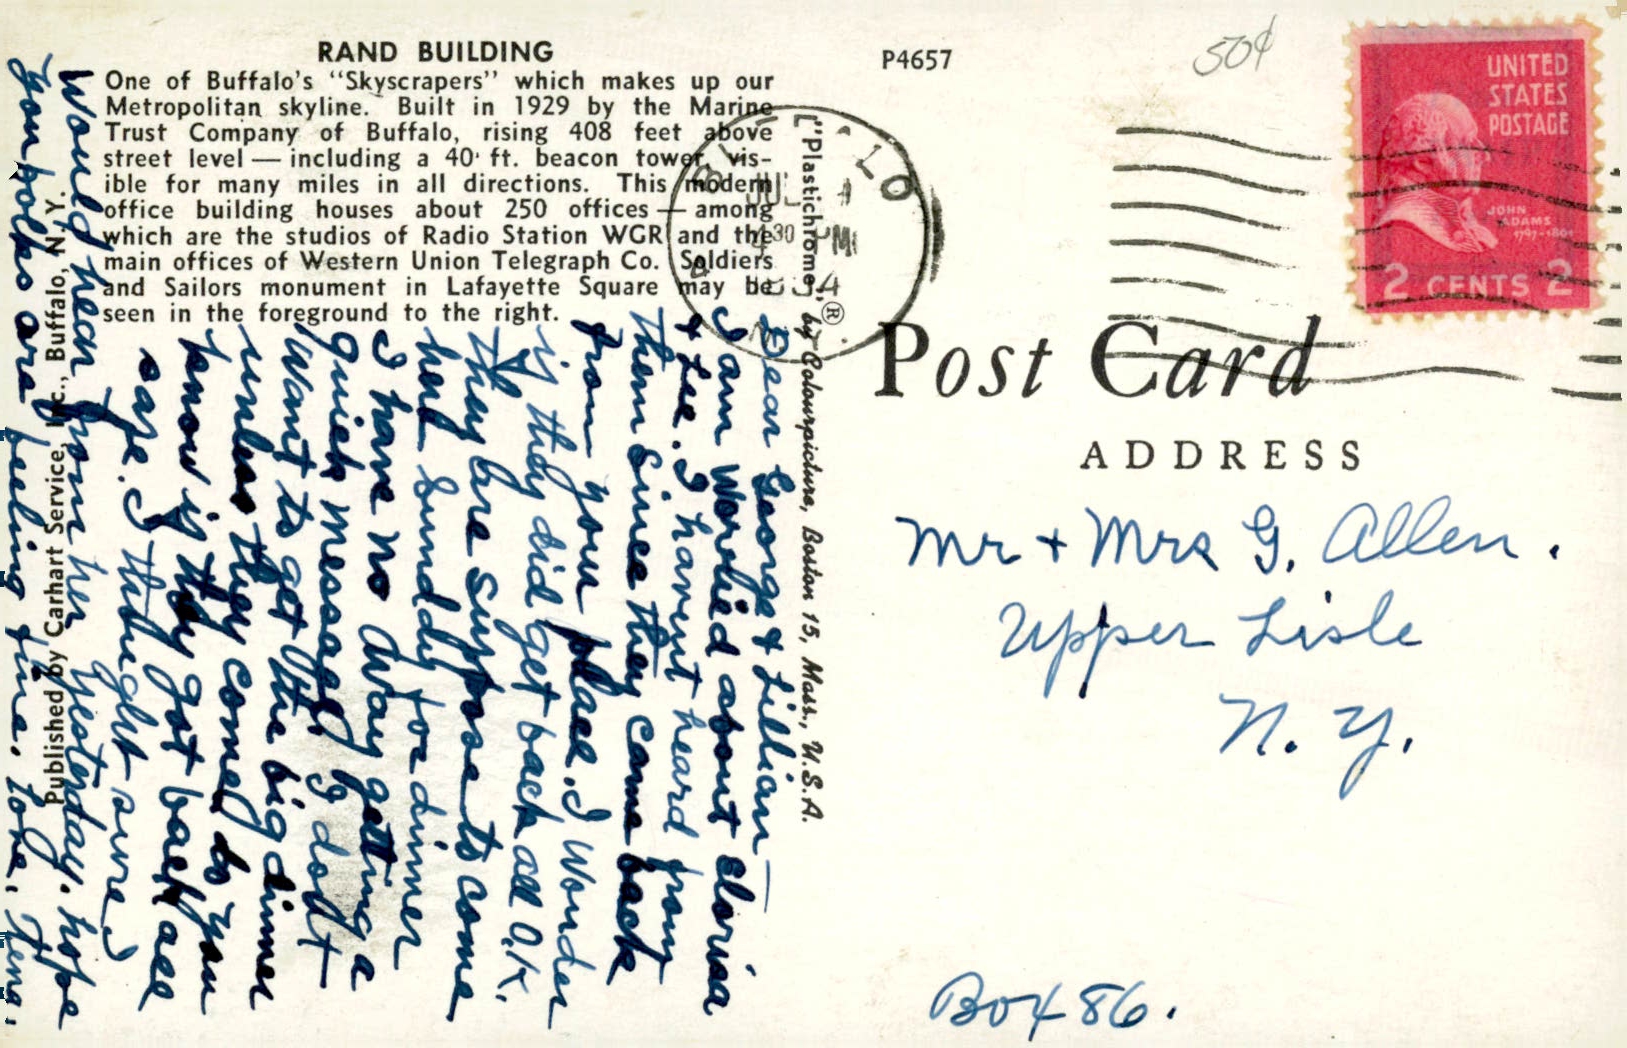 RAND BUILDING
One of Buffalo's "Skyscrapers" which makes up our
Metropolitan skyline. Built in 1929 by the Marine
Trust Company of Buffalo, rising 408 feet above
street level — including a 40 ft. beacon tower, vis-
ible for many miles in all directions. This modern
office building houses about 250 offices — among
which are the studios of Radio Station WGR and the
main offices of Western Union Telegraph Co. Soldiers
and Sailors monument in Lafayette Square may be
seen in the foreground to the right.
P4657
50¢
UNITED
STATES
POSTAGE
JOHN
ADAMS
1797-1801
2 CENTS 2
JUL 4
4 30 PM
"Plastichrome" ® by Colourpicture, Boston 15, Mass., U.S.A.
Published by Carhart Service, Inc., Buffalo, N. Y.
Post Card
ADDRESS
Mr + Mrs G. Allen.
Upper Lisle
N. Y.
Box 86.
Dear George & Lillian —
I am Worried about Gloria
& Lee. I havent heard from
them since they came back
from your place. I Wonder
if they did get back all O.K.
They are suppose to come
here Sunddy for dinner
I have no Away getting a
quick message. I dont
Want to get the big dinner
unless they comes do you
know if they got back all
safe. I thought sure I
Would hear from her yesterday. hope
you folks are feeling fine. Love.